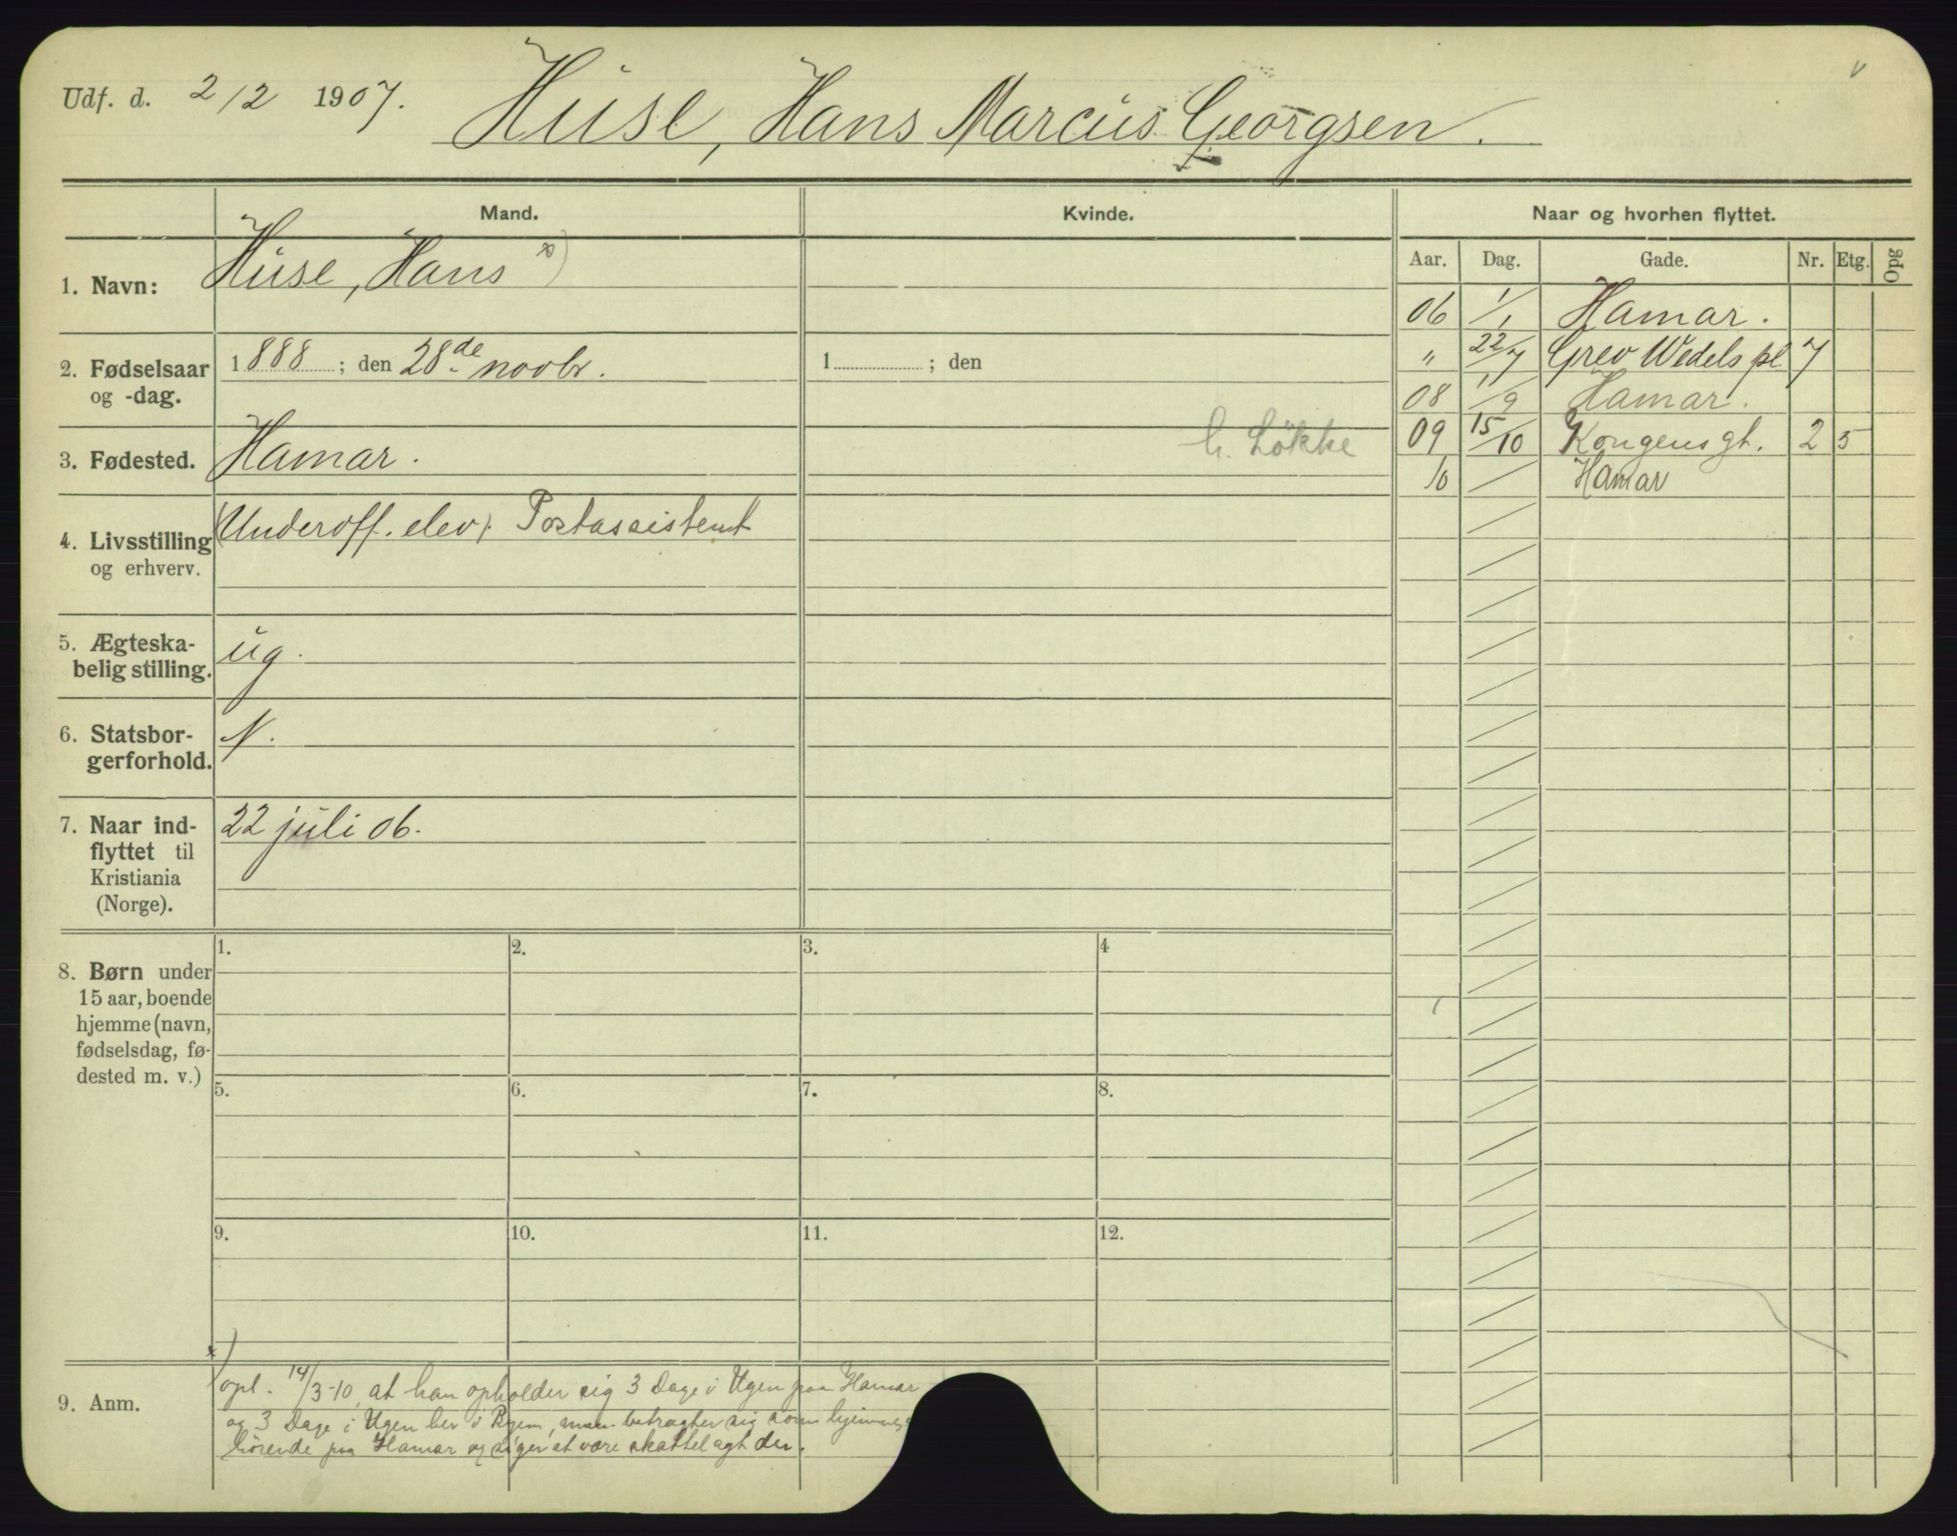 Udf. d. 2/2 1907. Huse, Hans Marcus Georgsen.
Mand. Kvinde. Naar og hvorhen flyttet.
Aar. Dag. Gade. Nr. Etg. Opg
1. Navn: Huse, Hans x)
06 1/1 Hamar.
" 22/7 Grev Wedels pl 7
08 1/9 Hamar.
09 15/10 Kongens gt. 2 5
10 / Hamar
2. Fødselsaar 1888; den 28de novbr. 1 ; den
og -dag.
3. Fødested. Hamar. Løkke
4. Livsstilling (Underoff. elev). Postassistent
og erhverv.
5. Ægteska-
belig stilling. ug.
6. Statsbor- N.
gerforhold.
7. Naar ind- 22 juli 06.
flyttet til
Kristiania
(Norge).
8. Børn under
15 aar, boende
hjemme (navn,
fødselsdag, fø-
dested m. v.)
1. 2. 3. 4
5. 6. 7. 8.
9. 10. 11. 12.
x)
9. Anm. opl. 14/3-10, at han opholder sig 3 Dage i Ugen paa Hamar
og 3 Dage i Ugen her i Byen, men betragter sig som hjemme
hörende paa Hamar og siger at være skattelagt der.